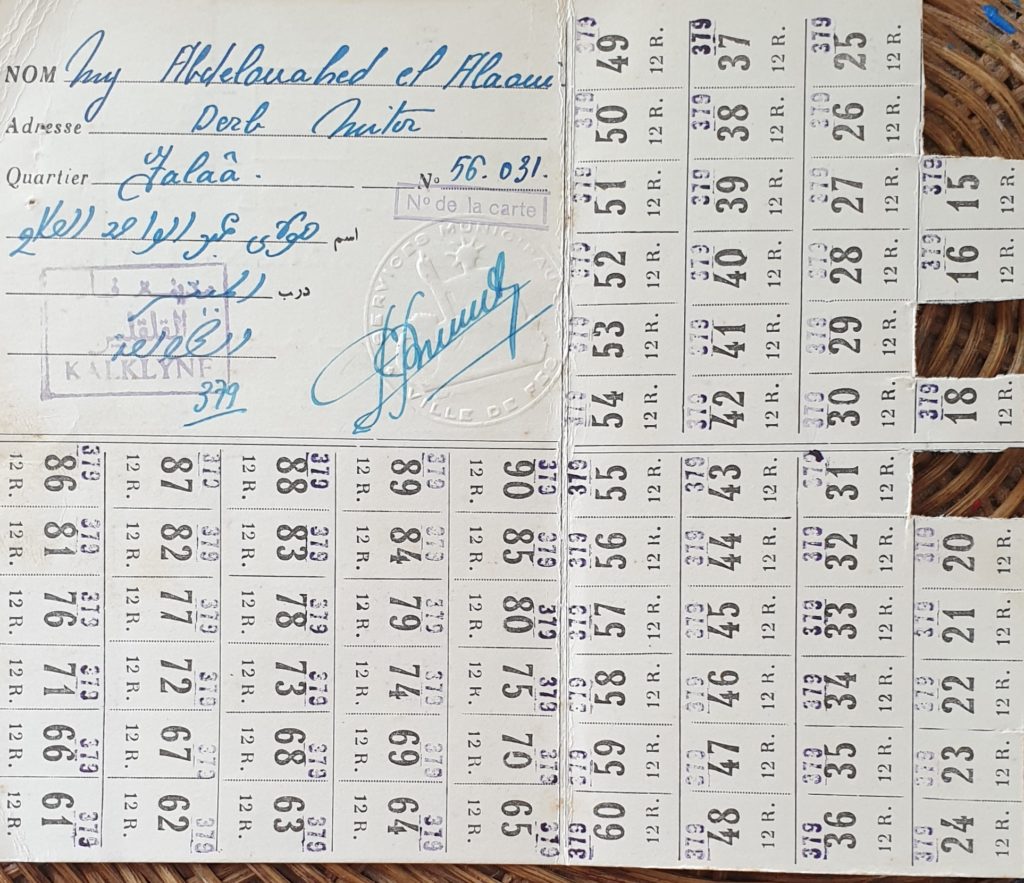 NOM My Abdelouahed el Alaoui
Adresse Derb Mitor
Quartier Talaâ.
N° 56.031.
N° de la carte
اسم مولاي عبد الواحد العلوي
درب
القلقليين
KALKLYNE
379
SERVICES MUNICIPAUX
VILLE DE FES
49 379 12 R.
37 379 12 R.
25 379 12 R.
50 379 12 R.
38 379 12 R.
26 379 12 R.
51 379 12 R.
39 379 12 R.
27 379 12 R.
15 379 12 R.
52 379 12 R.
40 379 12 R.
28 379 12 R.
16 379 12 R.
53 379 12 R.
41 379 12 R.
29 379 12 R.
54 379 12 R.
42 379 12 R.
30 379 12 R.
18 379 12 R.
55 379 12 R.
43 379 12 R.
31 379 12 R.
56 379 12 R.
44 379 12 R.
32 379 12 R.
20 379 12 R.
57 379 12 R.
45 379 12 R.
33 379 12 R.
21 379 12 R.
58 379 12 R.
46 379 12 R.
34 379 12 R.
22 379 12 R.
59 379 12 R.
47 379 12 R.
35 379 12 R.
23 379 12 R.
60 379 12 R.
48 379 12 R.
36 379 12 R.
24 379 12 R.
86 379 12 R.
87 379 12 R.
88 379 12 R.
89 379 12 R.
90 379 12 R.
81 379 12 R.
82 379 12 R.
83 379 12 R.
84 379 12 R.
85 379 12 R.
76 379 12 R.
77 379 12 R.
78 379 12 R.
79 379 12 R.
80 379 12 R.
71 379 12 R.
72 379 12 R.
73 379 12 R.
74 379 12 R.
75 379 12 R.
66 379 12 R.
67 379 12 R.
68 379 12 R.
69 379 12 R.
70 379 12 R.
61 379 12 R.
62 379 12 R.
63 379 12 R.
64 379 12 R.
65 379 12 R.